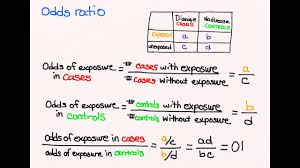 Odds ratio
Disease No disease
CASES CONTROLS
exposed a b
unexposed c d
Odds of exposure in cases = # cases with exposure / # cases without exposure = a/c
Odds of exposure in controls = # controls with exposure / # controls without exposure = b/d
odds of exposure in cases / odds of exposure in controls = a/c / b/d = ad/bc = OR